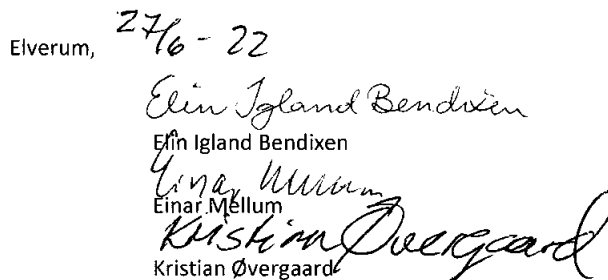 Elverum, 27/6 - 22
Elin Igland Bendixen
Elin Igland Bendixen
Einar Mellum
Einar Mellum
Kristian Øvergaard
Kristian Øvergaard